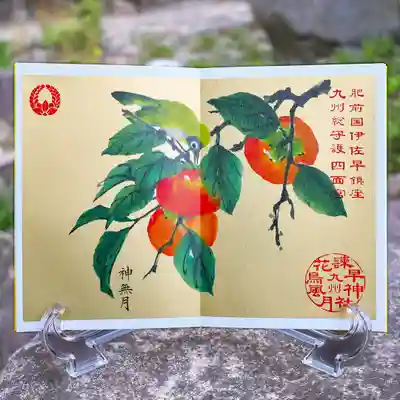 肥前国伊佐早鎮座
九州総守護四面宮
神無月
諫早神社
九州
花鳥風月